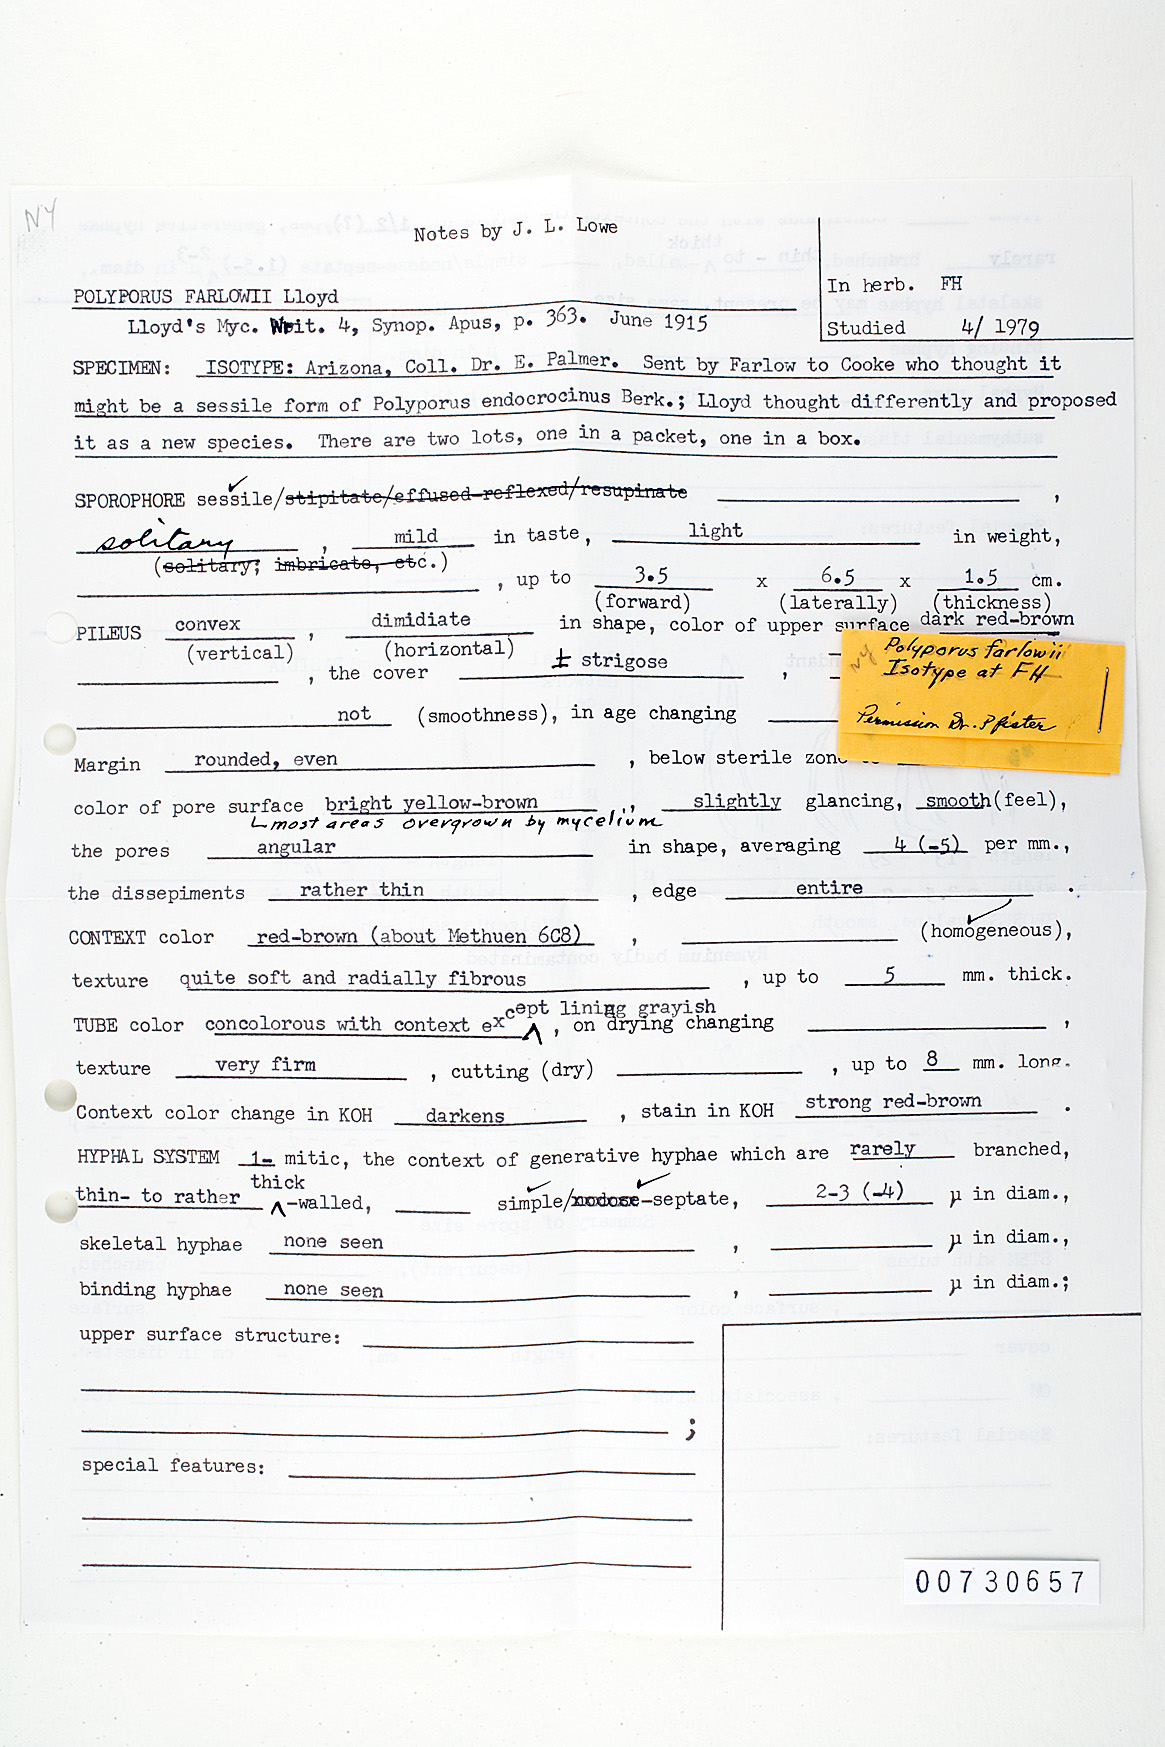 NY
Notes by J. L. Lowe
In herb. FH
Studied 4/ 1979
POLYPORUS FARLOWII Lloyd
Lloyd's Myc. Writ. 4, Synop. Apus, p. 363. June 1915
SPECIMEN: ISOTYPE: Arizona, Coll. Dr. E. Palmer. Sent by Farlow to Cooke who thought it
might be a sessile form of Polyporus endocrocinus Berk.; Lloyd thought differently and proposed
it as a new species. There are two lots, one in a packet, one in a box.
SPOROPHORE sessile/stipitate/effused-reflexed/resupinate ,
solitary , mild in taste, light in weight,
(solitary; imbricate, etc.)
, up to 3.5 x 6.5 x 1.5 cm.
(forward) (laterally) (thickness)
PILEUS convex , dimidiate in shape, color of upper surface dark red-brown
(vertical) (horizontal)
, the cover ± strigose ,
not (smoothness), in age changing
NY Polyporus farlowii
Isotype at FH
Permission Dr. Pfister
Margin rounded, even , below sterile zone
color of pore surface bright yellow-brown , slightly glancing, smooth(feel),
most areas overgrown by mycelium
the pores angular in shape, averaging 4 (-5) per mm.,
the dissepiments rather thin , edge entire .
CONTEXT color red-brown (about Methuen 6C8) , (homogeneous),
texture quite soft and radially fibrous , up to 5 mm. thick.
TUBE color concolorous with context except lining grayish , on drying changing ,
texture very firm , cutting (dry) , up to 8 mm. long.
Context color change in KOH darkens , stain in KOH strong red-brown .
HYPHAL SYSTEM 1- mitic, the context of generative hyphae which are rarely branched,
thin- to rather thick -walled, simple/nodose-septate, 2-3 (-4) µ in diam.,
skeletal hyphae none seen , µ in diam.,
binding hyphae none seen , µ in diam.;
upper surface structure:
;
special features:
00730657